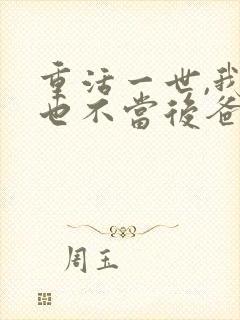 重活一世,我
也不當後爸
周玉